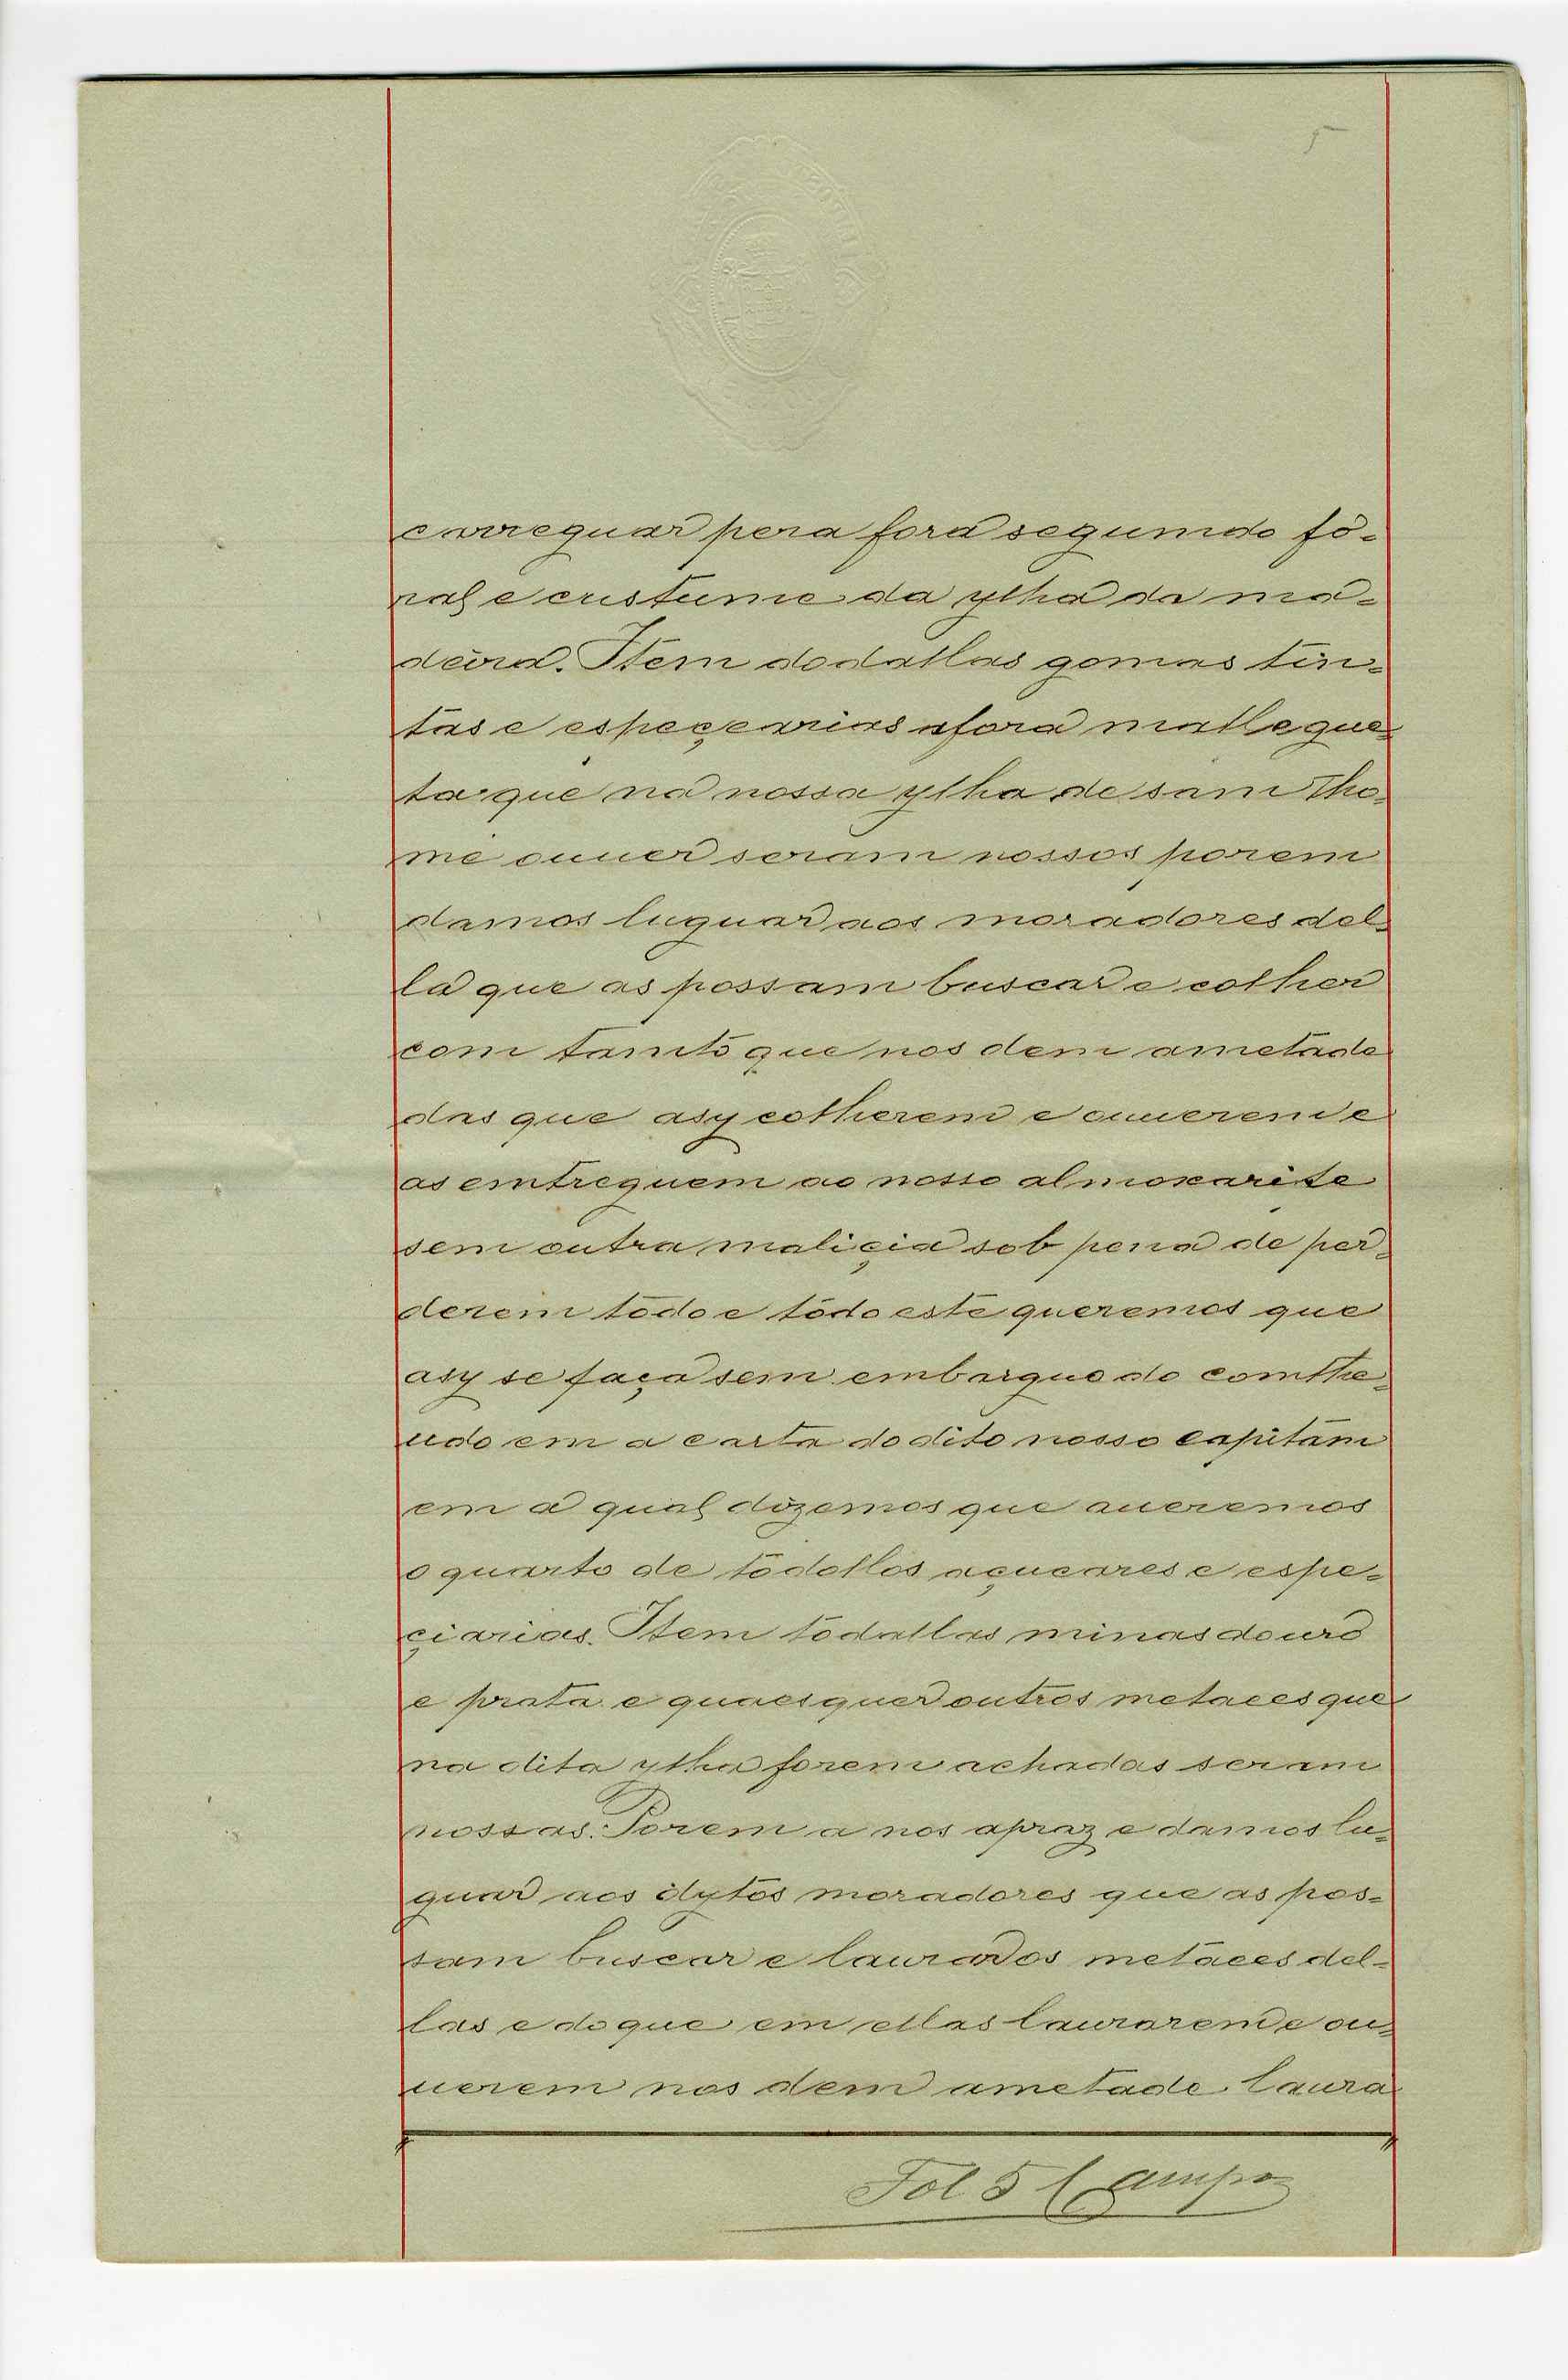 5
carreguar pera fora segumdo fo-
ral e custume da ylha da ma-
deira. Item dodallas gomas tin-
tas e espeçearias afora mallegue-
ta que na nossa ylha de sam Tho-
me ouuer seram nossos porem
damos luguar aos moradores del-
la que as possam buscar e colher
com tamto que nos dem ametade
das que asy colherem e ouuerem e
as emtreguem ao nosso almoxarife
sem outra maliçia sob pena de per-
derem todo e todo este queremos que
asy se faça sem embarguo do comthe-
udo em a carta do dito nosso capitam
em a qual dizemos que aueremos
o quarto de todollos açucares e espe-
çiarias. Item todallas minas douro
e prata e quaesquer outros metaees que
na dita ylha forem achadas seram
nossas. Porem a nos apraz e damos lu-
guar aos dytos moradores que as pos-
sam buscar e laurar os metaees del-
las e do que em ellas laurarem e ou-
uerem nos dem ametade. laura
Fol 5 Campos